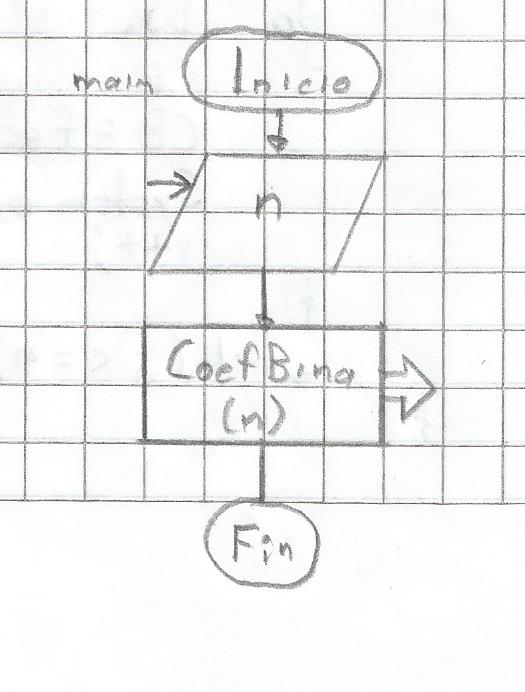 main
Inicio
n
CoefBino
(n)
Fin